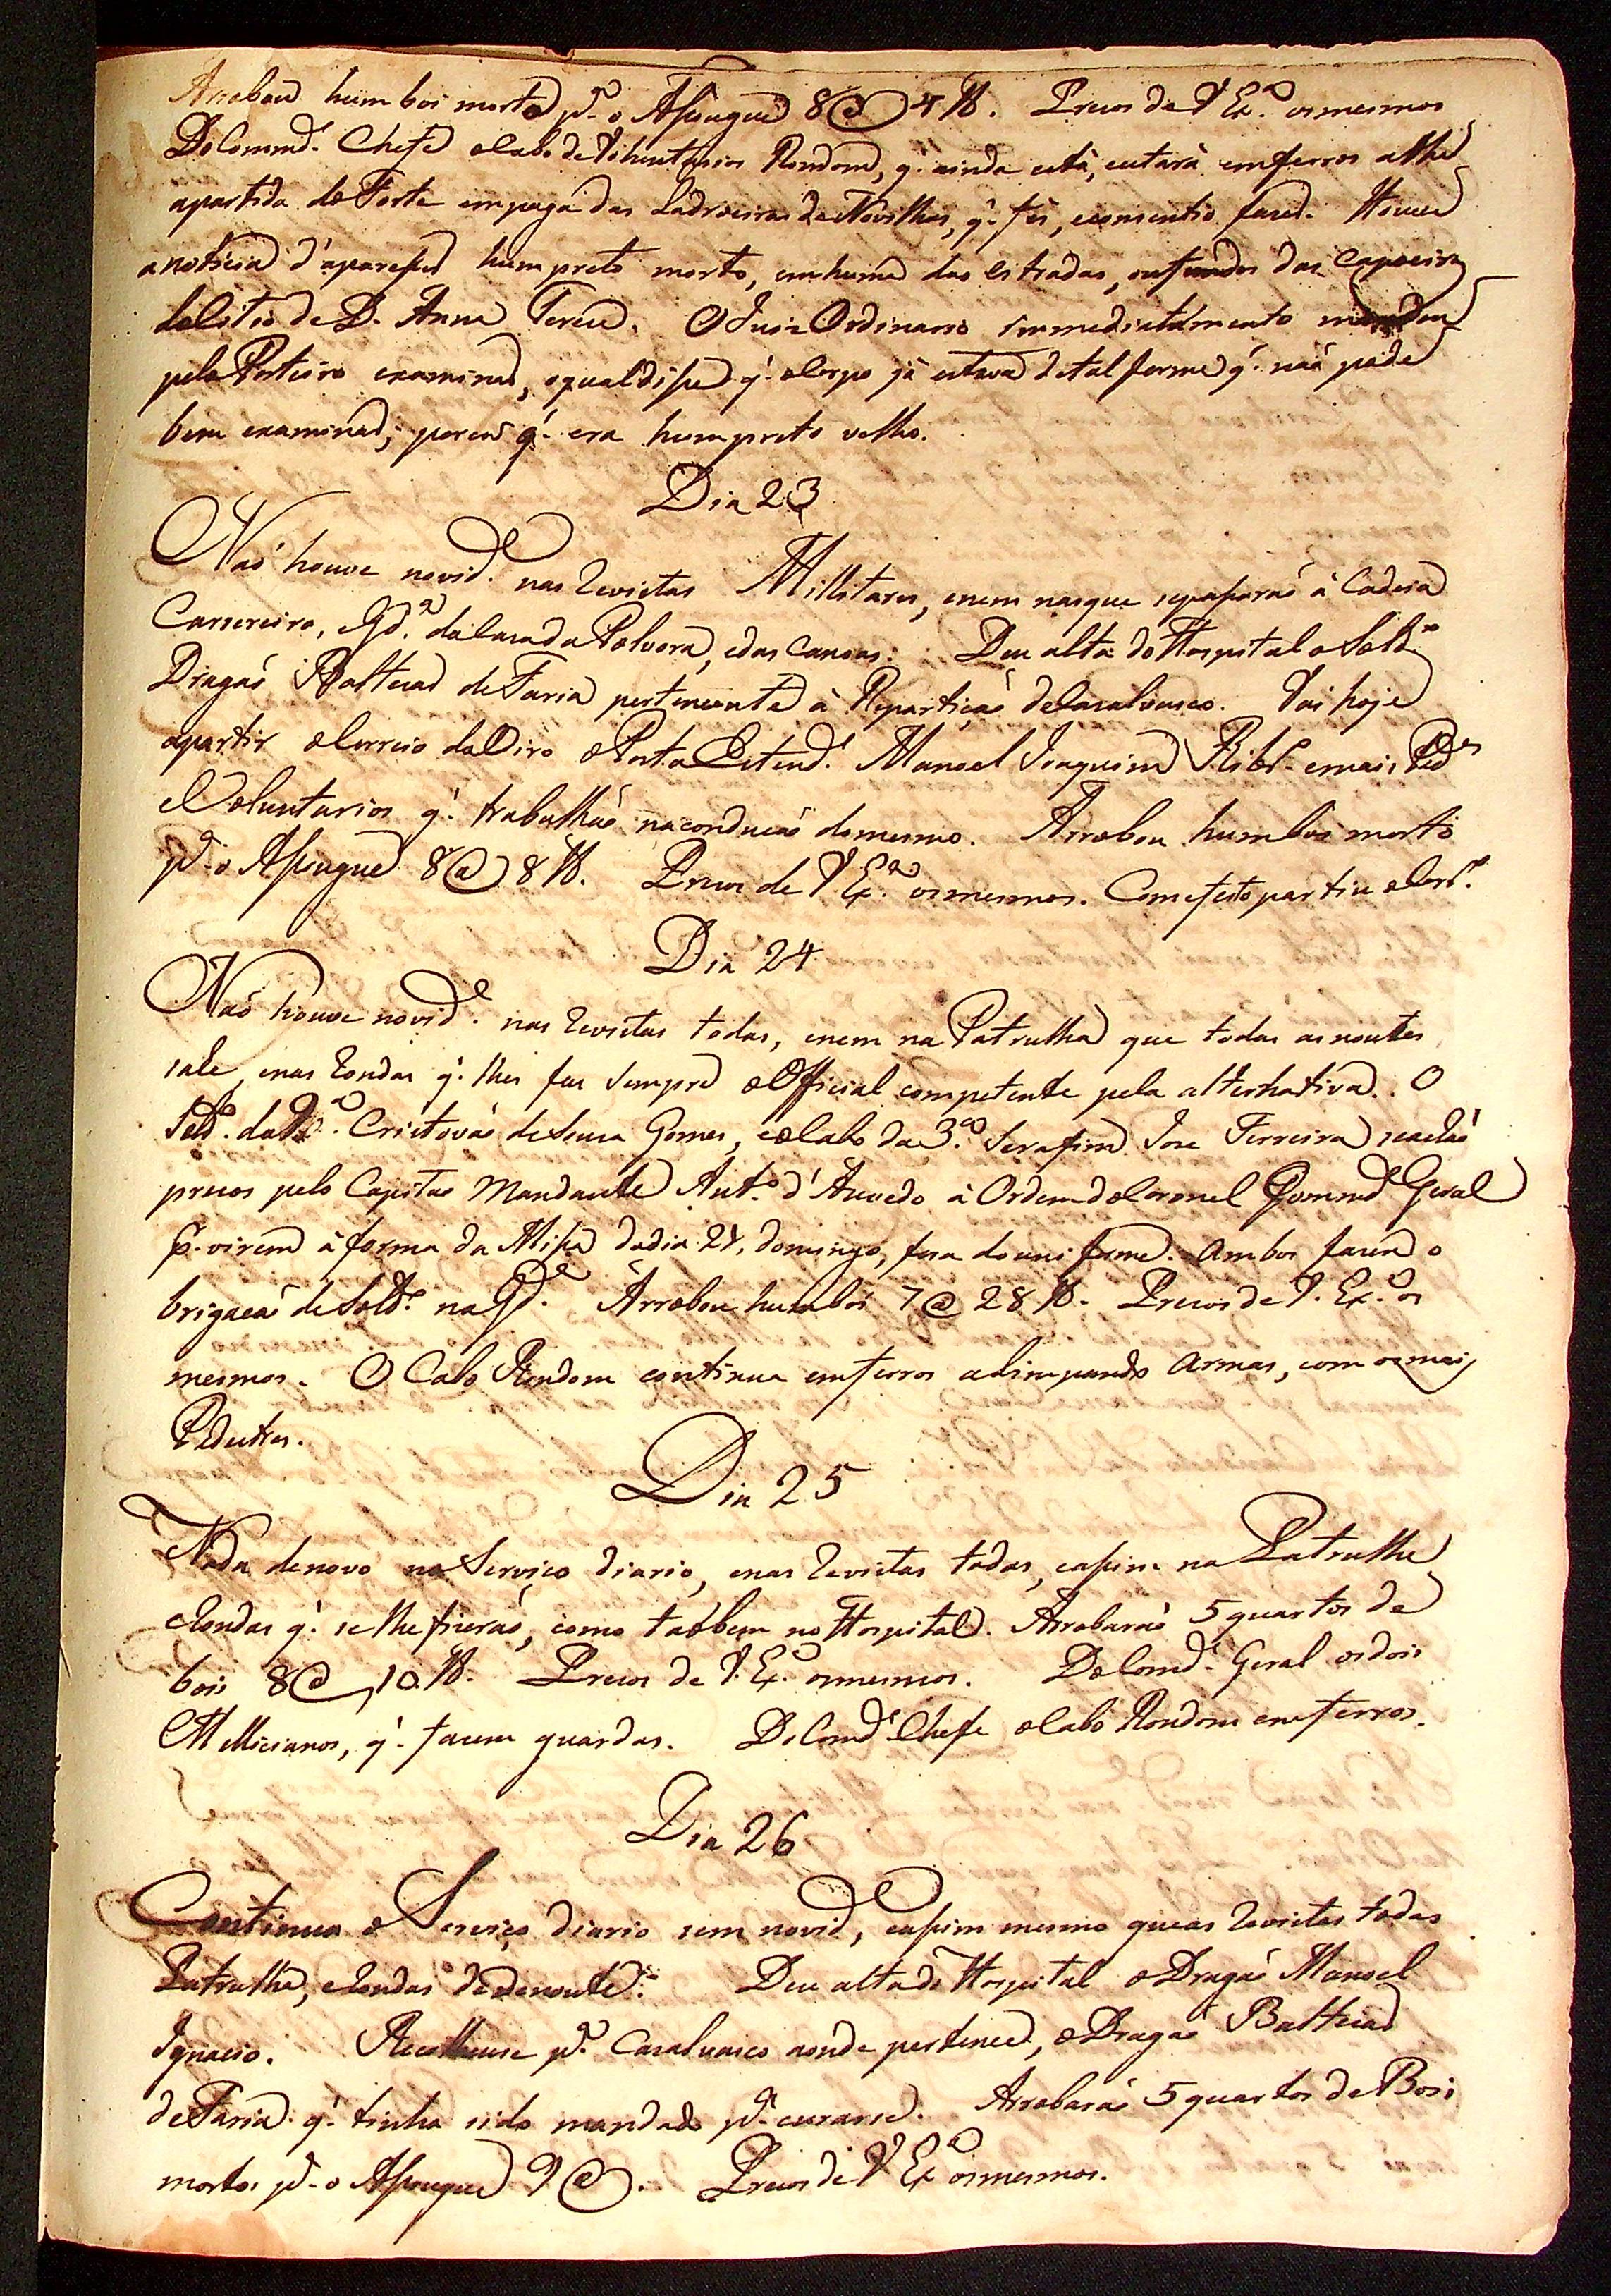 Arrobou hum boi morto pª o Assougue 8@ 4 lb. Prezos de V Exª os mesmos
Do Commdᵉ Chefe o Cabo de Voluntarios Rondom, q' ainda está, e estará em ferros athe
a partida do Forte em paga das Ladroeiras de Novilhas, q' fes, e consentio fazer. Houve
a noticia d'apareser hum preto morto, em huma das estradas, ou fundos das Capoeiras
do Sitio de D. Anna Tereza. O Juiz Ordinario immediatamente mandou
pelo Porteiro examinar, o qual disse q' o Corpo já estava de tal forma q' naõ pode
bem examinar; porem q' era hum preto velho.
Dia 23
Naõ houve novidᵉ. nas Revistas Millitares, e nem nas que se passaraõ á Cadeia
Carsereiro, e Gdª. da Casa da Polvora, e das Canoas. Deu alta do Hospital o Soldº
Dragaõ Baltezar de Faria pertencente á Repartiçaõ de Casalvasco. Vai hoje
a partir o Correio do Giro o Porta Estendᵉ Manoel Joaquim Ribrº e mais Pedᵉˢ
e Voluntarios q' trabalhaõ na conducaõ do mesmo. Arrobou hum boi morto
pª o Assougue 8@ 8 lb. Prezos de V Exª os mesmos. Com efeito partiu o Corrº.
Dia 24
Naõ houve novidᵉ. nas Revistas todas, e nem na Patrulha que todas as noutes
sahe, e nas Rondas q' lhes faz sempre o Official competente pela alternativa. O
Soldº. da 2ª. Cristovaõ de Souza Gomes, e o Cabo da 3ª Serafim Jose Ferreira seachaõ
prezos pelo Capitaõ Mandante Antº d'Azevedo á Ordem do Coronel Commdᵉ Geral
pʳ virem á forma da Missa do dia 24, domingo, fora do uniforme. Ambos fazem o
brigacaõ de Soldº na Gdª. Arrobou hum boi 7@ 28 lb. Prezos de V. Exª os
mesmos. O Cabo Rondom continua em ferros a limpando Armas, com os mais
Pedestres.
Dia 25
Nada de novo no Serviço diario, e nas Revistas todas, e assim na Patrulha
e Rondas q' se lhe fizeraõ, como taõbem no Hospital. Arrobaraõ 5 quartos de
bois 8@ 10 lb. Prezos de V. Exª os mesmos. Do Comdᵉ Geral os dois
Millicianos, q' fazem guardas. Do Comdᵉ Chefe o Cabo Rondom em ferros.
Dia 26
Continua o Serviço diario sem novidᵉ, e assim mesmo que as Revistas todas
Patrulha, e Rondas de denoute. Deu alta do Hospital o Dragaõ Manoel
Ignacio. Recolheuse pª Casalvasco aonde pertence, o Dragaõ Baltezar
de Faria q' tinha sido mandado pª curarse. Arrobaraõ 5 quartos de Bois
mortos pª o Assougue 9@. Prezos de V Exª os mesmos.